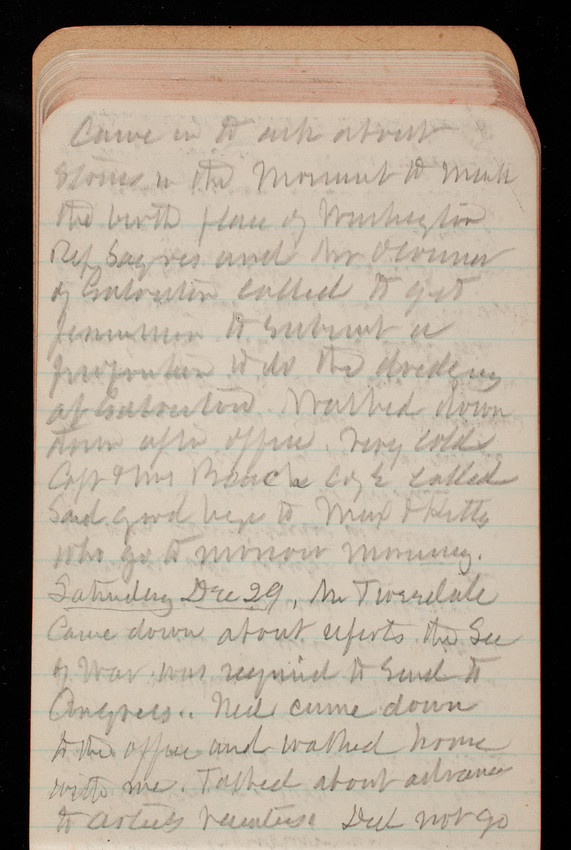 Came in to ask about
Stones in the Monument to mark
the birth place of Washington
Rep Sayres and Mr O'Connor
of Galveston called to get
permission to submit a
proposition to do the dredging
at Galveston. Walked down
town after office. Very cold
Capt & Mrs Beach C of E called
Said good bye to Max & Kitty
who go to morrow morning.
Saturday Dec 29, Mr Tweedale
Came down about reports the Sec
of War was required to Send to
Congress.. Ned came down
to the office and walked home
with me. Talked about advance
to Did not go